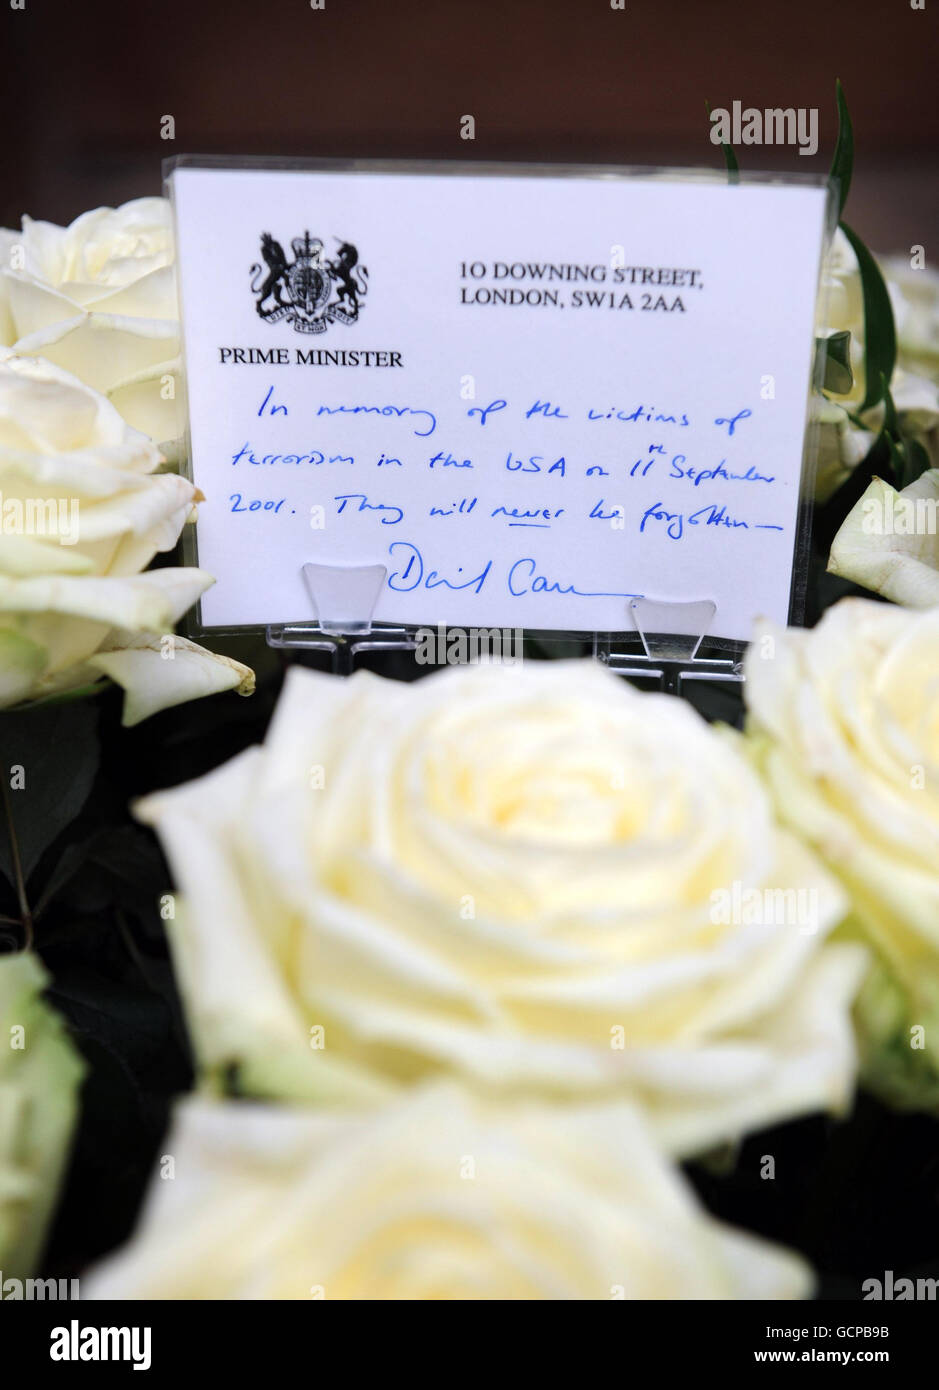 10 DOWNING STREET,
LONDON, SW1A 2AA
PRIME MINISTER
In memory of the victims of
terrorism in the USA on 11th September
2001. They will never be forgotten —
David Cam
alamy
alamy
alamy
a
a
a
a
a
a
alamy stock photo
Image ID: GCPB9B
www.alamy.com